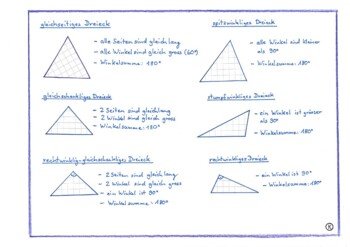 gleichseitiges Dreieck
- alle Seiten sind gleich lang
- alle Winkel sind gleich gross (60°)
- Winkelsumme: 180°
gleichschenkliges Dreieck
- 2 Seiten sind gleichlang
- 2 Winkel sind gleich gross
- Winkelsumme: 180°
rechtwinklig-gleichschenkliges Dreieck
- 2 Seiten sind gleich lang
- 2 Winkel sind gleich gross
- ein Winkel ist 90°
- Winkelsumme: 180°
spitzwinkliges Dreieck
- alle Winkel sind kleiner
als 90°
- Winkelsumme: 180°
stumpfwinkliges Dreieck
- ein Winkel ist grösser
als 90°
- Winkelsumme: 180°
rechtwinkliges Dreieck
- ein Winkel ist 90°
- Winkelsumme: 180°